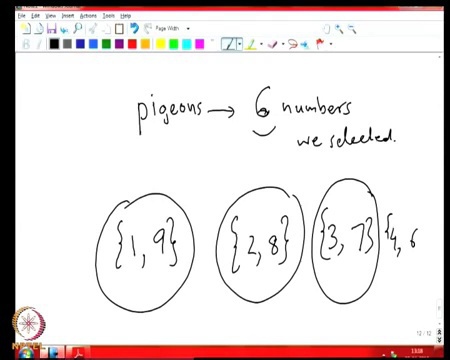 File Edit View Insert Actions Tools Help
Page Width
B
pigeons → 6 numbers
we selected.
{1, 9} {2, 8} {3, 7} {4, 6
12 / 12
NPTEL